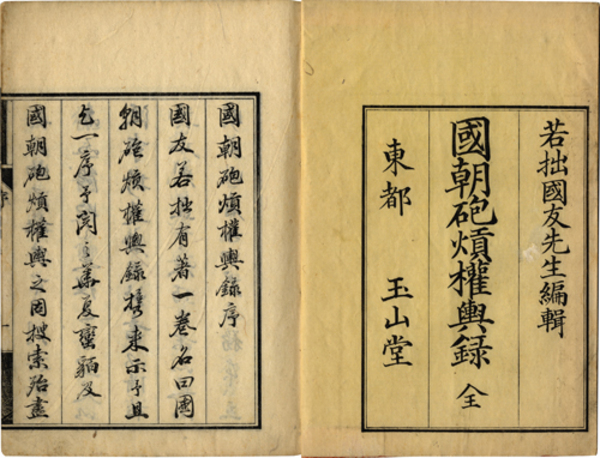 若拙國友先生編輯
國朝砲熕權輿録 全
東都 玉山堂
國朝砲熕權輿錄序
國友若拙有著一卷名曰國
朝砲熕權輿錄携来示予且
乞一序予閲之華夏蠻貊及
國朝砲熕權輿之因搜索殆盡